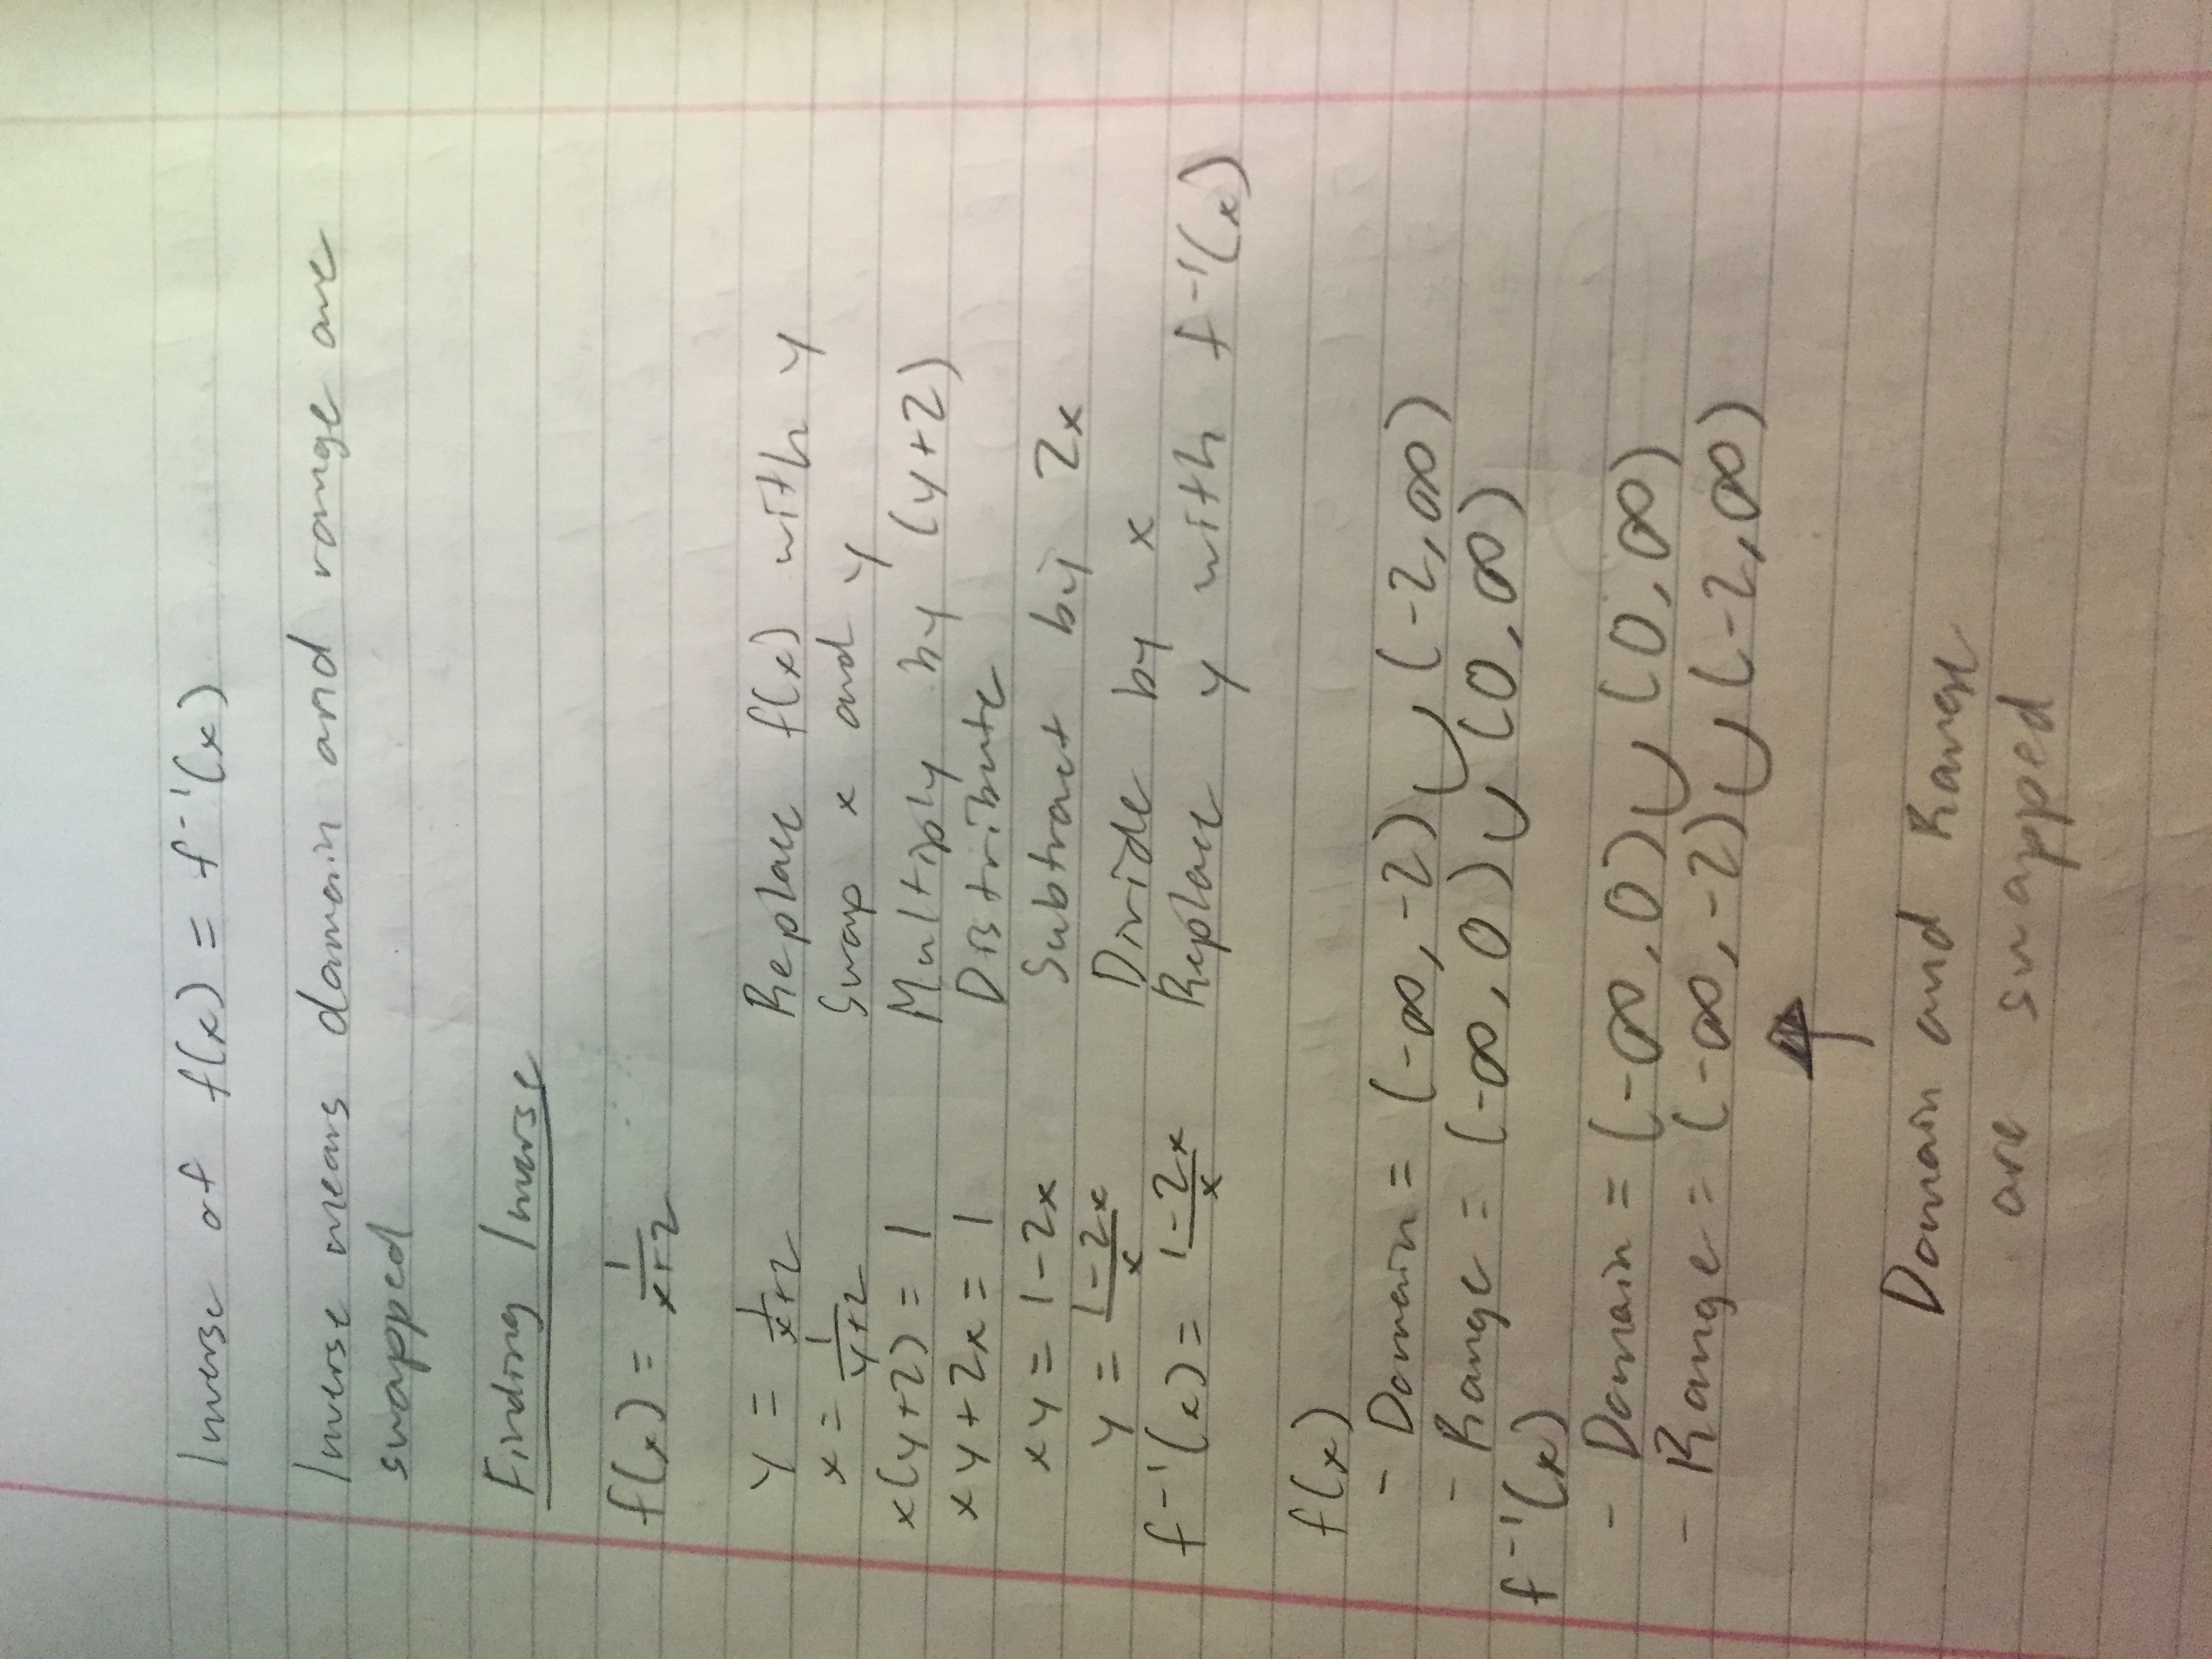 Inverse of f(x) = f⁻¹(x)
Inverse means domain and range are
swapped
Finding Inverse
f(x) = 1/(x+2)
y = 1/(x+2) Replace f(x) with y
x = 1/(y+2) Swap x and y
x(y+2) = 1 Multiply by (y+2)
xy+2x = 1 Distribute
xy = 1-2x Subtract by 2x
y = (1-2x)/x Divide by x
f⁻¹(x) = (1-2x)/x Replace y with f⁻¹(x)
f(x)
- Domain = (-∞, -2) ∪ (-2, ∞)
- Range = (-∞, 0) ∪ (0, ∞)
f⁻¹(x)
- Domain = (-∞, 0) ∪ (0, ∞)
- Range = (-∞, -2) ∪ (-2, ∞)
↑
Domain and Range
are swapped